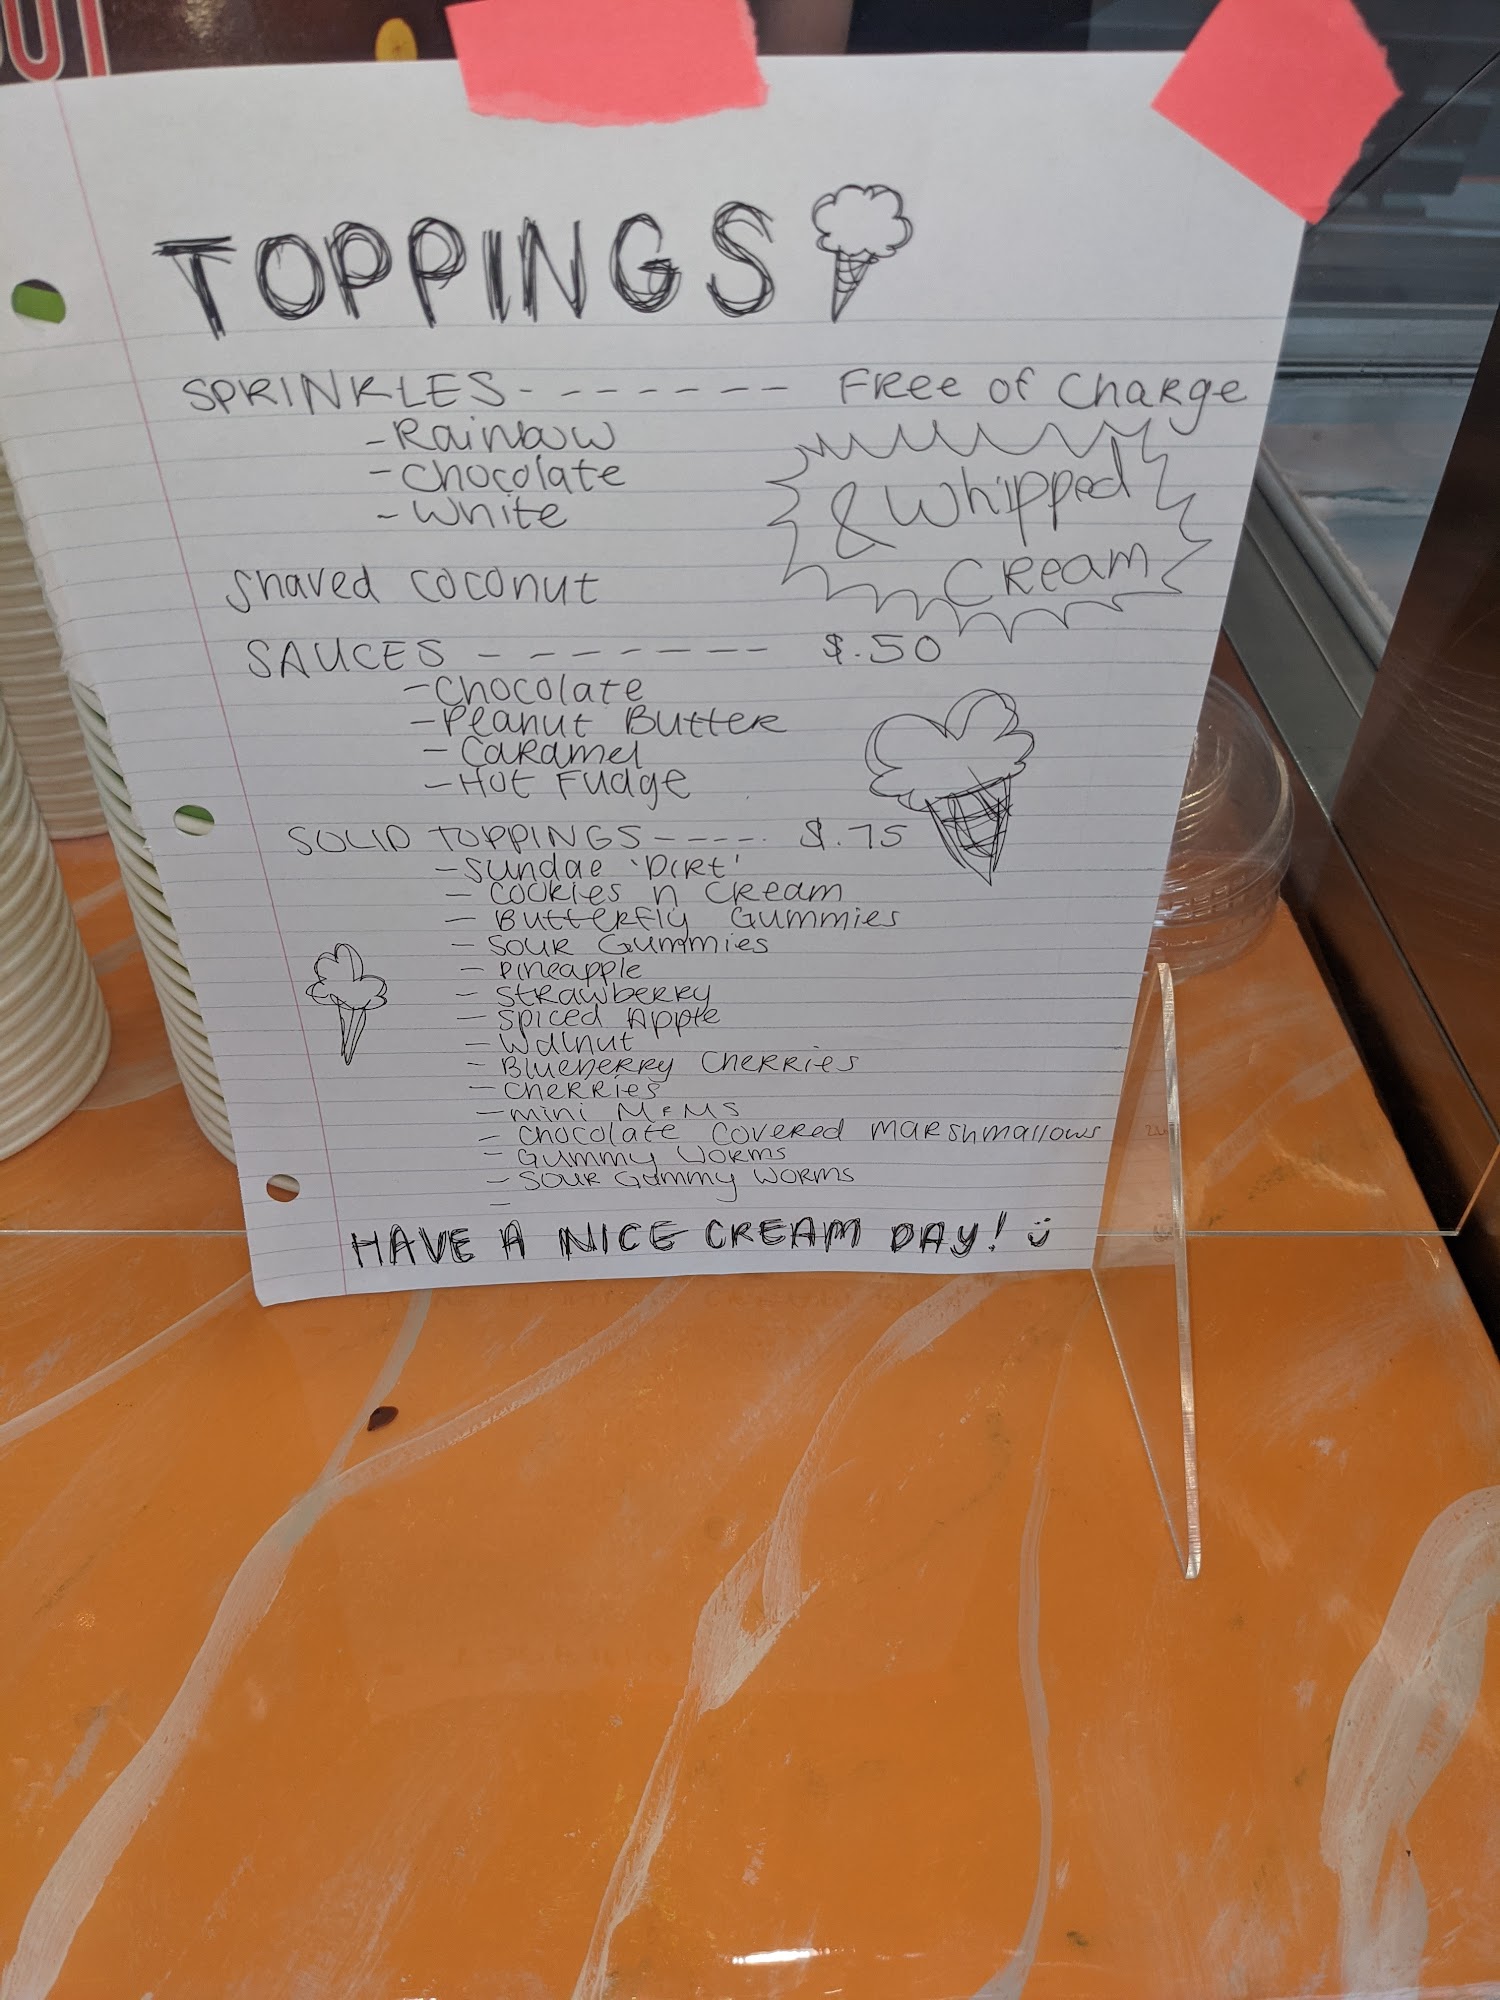 OUT
TOPPINGS
SPRINKLES - - - - - - - Free of Charge
- Rainbow
- Chocolate
- White
& Whipped
Cream
Shaved coconut
SAUCES - - - - - - - $.50
- Chocolate
- Peanut Butter
- Caramel
- Hot Fudge
SOLID TOPPINGS - - - - . $.75
- Sundae 'Dirt'
- Cookies n Cream
- Butterfly Gummies
- Sour Gummies
- Pineapple
- Strawberry
- Spiced Apple
- Walnut
- Blueberry Cherries
- Cherries
- mini M&Ms
- Chocolate Covered Marshmallows
- Gummy Worms
- Sour Gummy Worms
-
HAVE A NICE CREAM DAY! :)